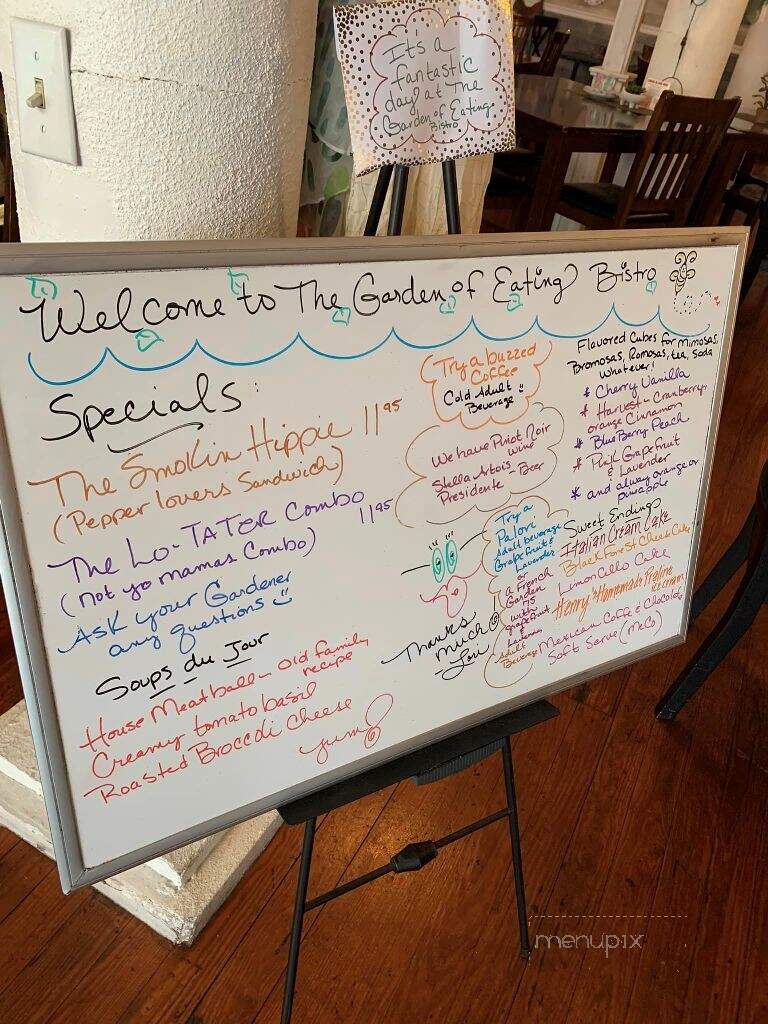 It's a
fantastic
day at The
Garden of Eating
Bistro
Welcome to The Garden of Eating Bistro
Specials:
The Smokin Hippie 11.95
(Pepper lovers Sandwich)
The Lo-TATER Combo 11.95
(not yo mamas Combo)
Ask your Gardener
any questions
Soups du Jour
House Meatball - old family
recipe
Creamy tomato basil
Roasted Broccoli Cheese
yum
Try a buzzed
Coffee
Cold Adult
Beverage
We have Pinot Noir
wine
Stella Artois
Presidente - Beer
Try a
Palori
Adult beverage
Grapefruit &
Lavender
or
a French
Garden
75
with
grapefruit
&
Adult
Beverage
Thanks
much
- Lori
Flavored Cubes for Mimosas,
Bromosas, Romosas, tea, Soda
Whatever!
* Cherry Vanilla
* Harvest - Cranberry,
orange Cinnamon
* Blue Berry Peach
* Pink Grapefruit
& Lavender
* and alway orange or
pineapple
Sweet Endings
Italian Cream Cake
Black Forst Cheese Cake
Limon Cello Cake
Henry's Homemade Praline
Ice cream
Mexican Coffe & Chocolate
Soft Serve (MoCo)
menupix